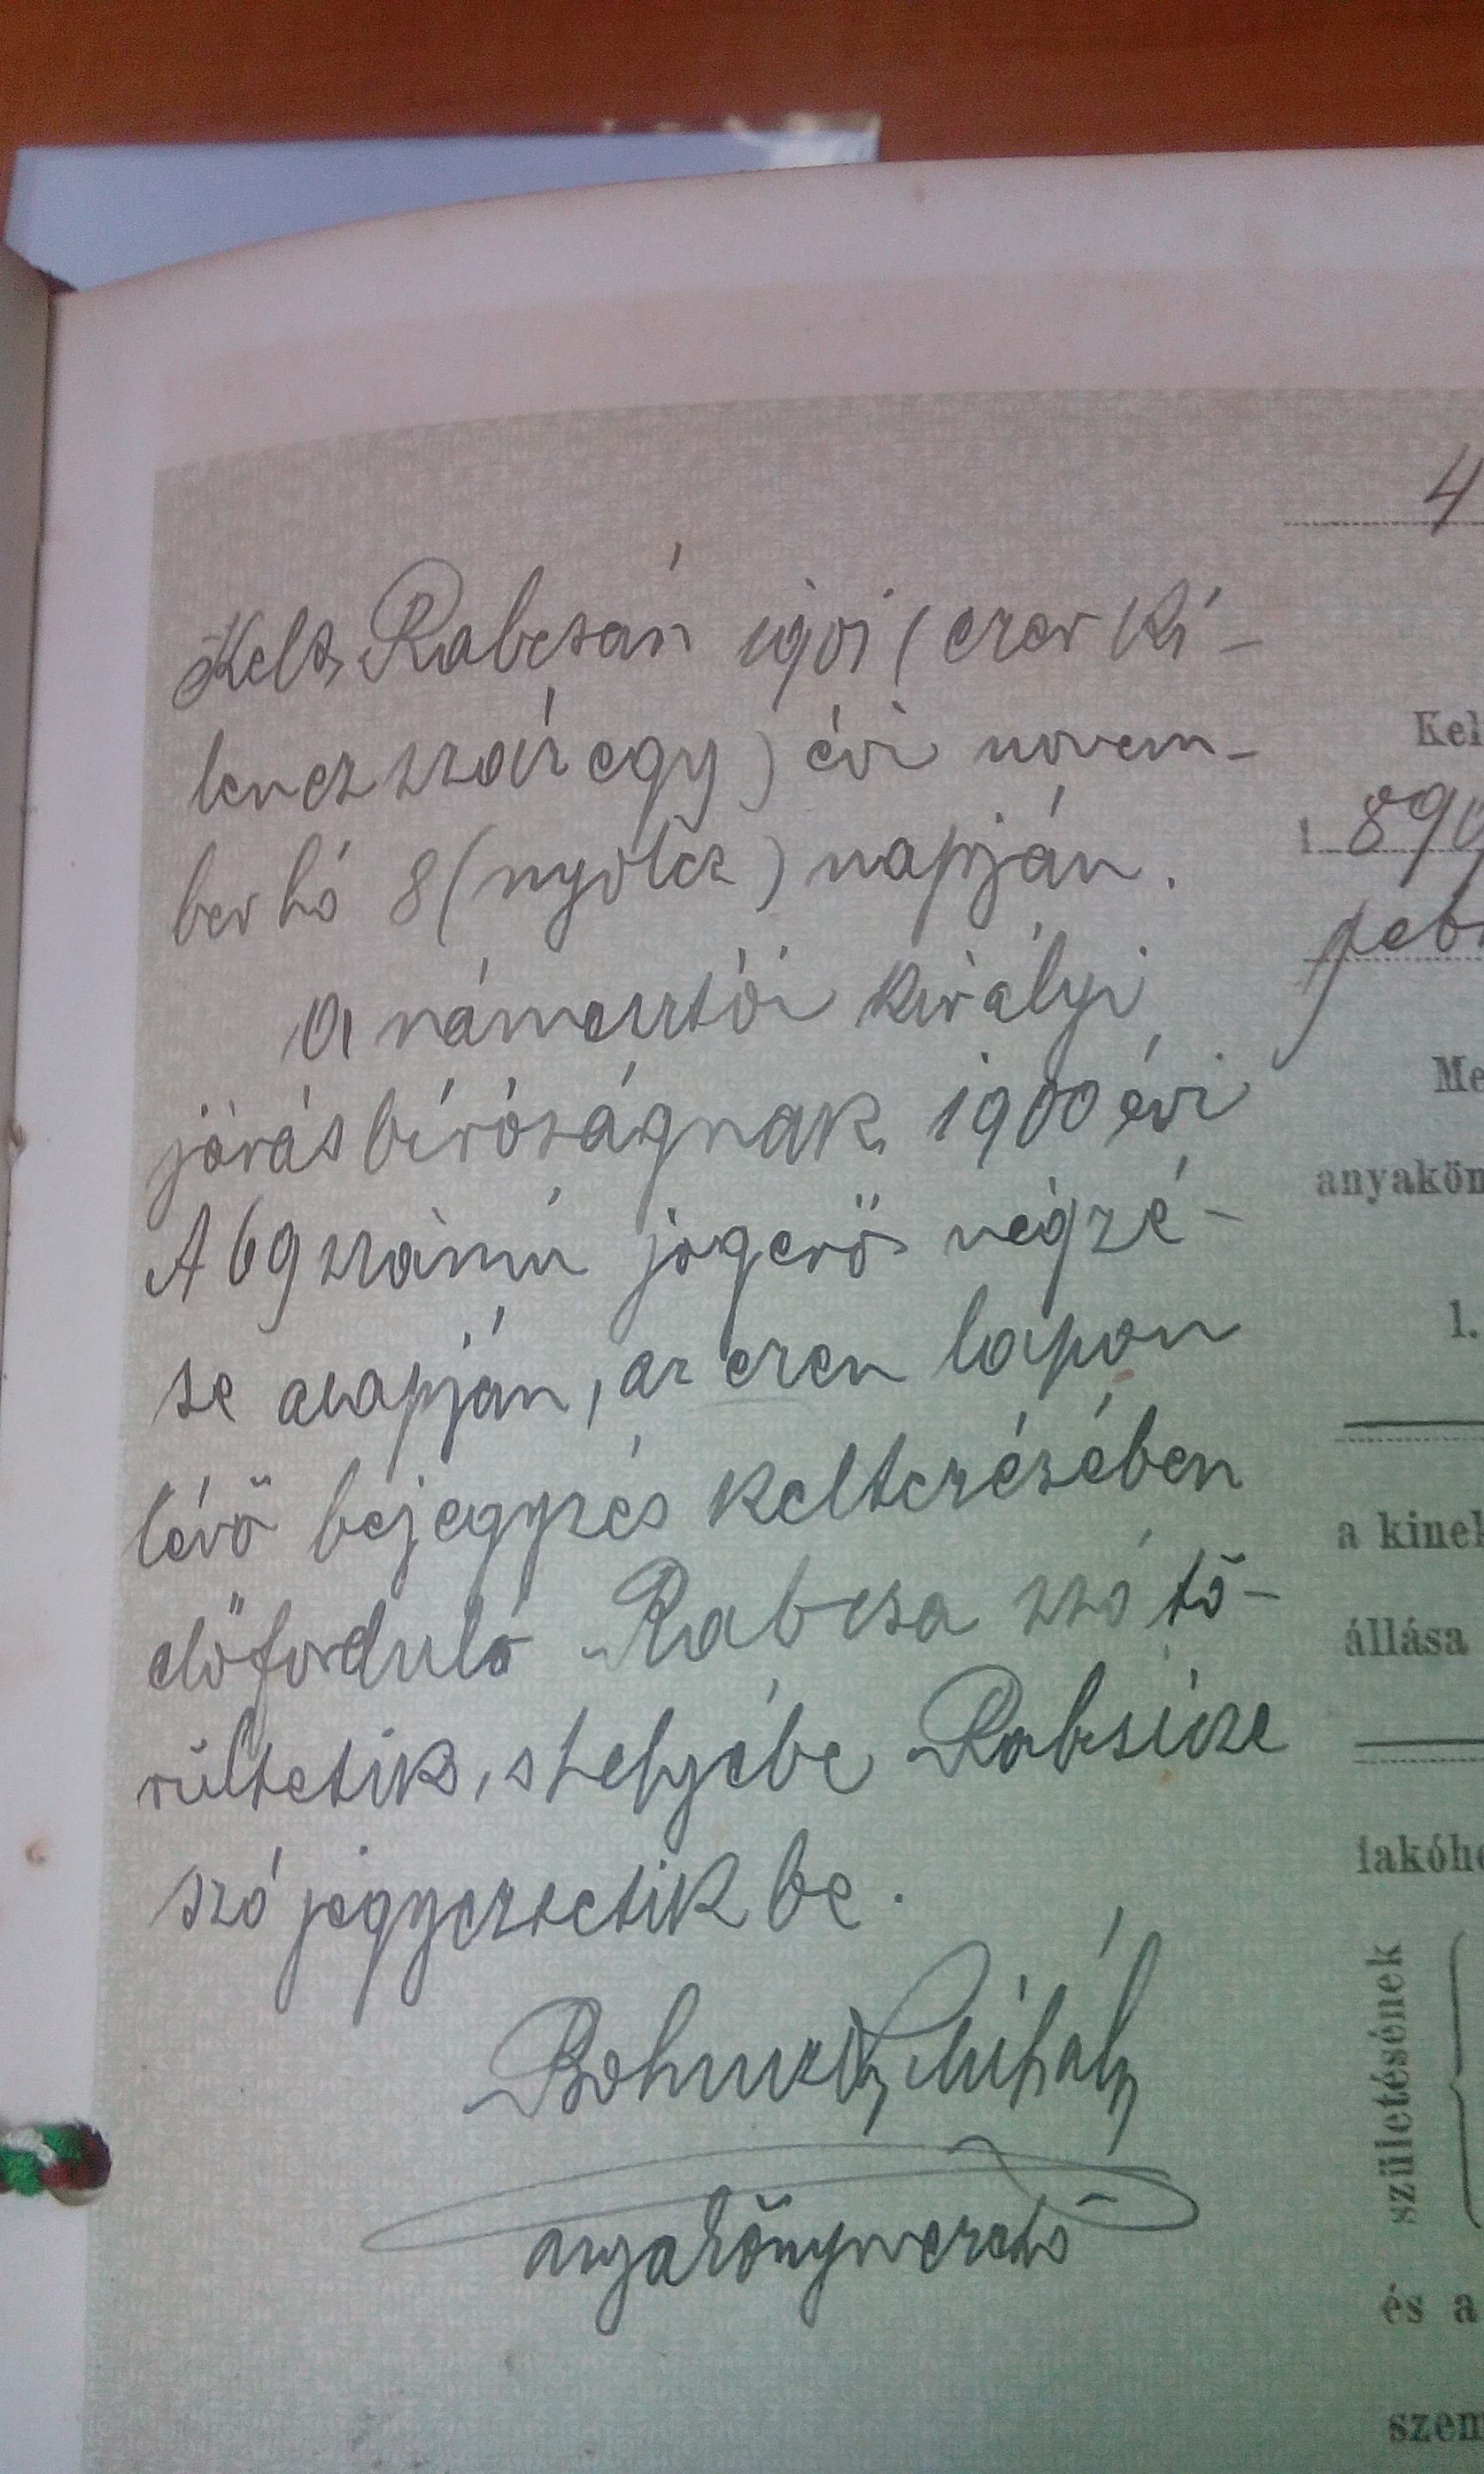 4
Kelt, Rabcsán 1901 (ezerki-
lenczszáz egy) évi novem-
ber hó 8 (nyolcz) napján.
A námesztói királyi
járásbíróságnak 1900 évi
A 69 számú jogerős végzé-
se alapján, az ezen lapon
lévő bejegyzés keltezésében
előforduló Rabcsa szó tö-
rültetik, s helyébe Rabsicze
szó jegyeztetik be.
Mihály
anyakönyvvezető
Kel
1 89
feb
Me
anyakön
1.
a kinek
állása
lakóhe
születésének
és a
szem